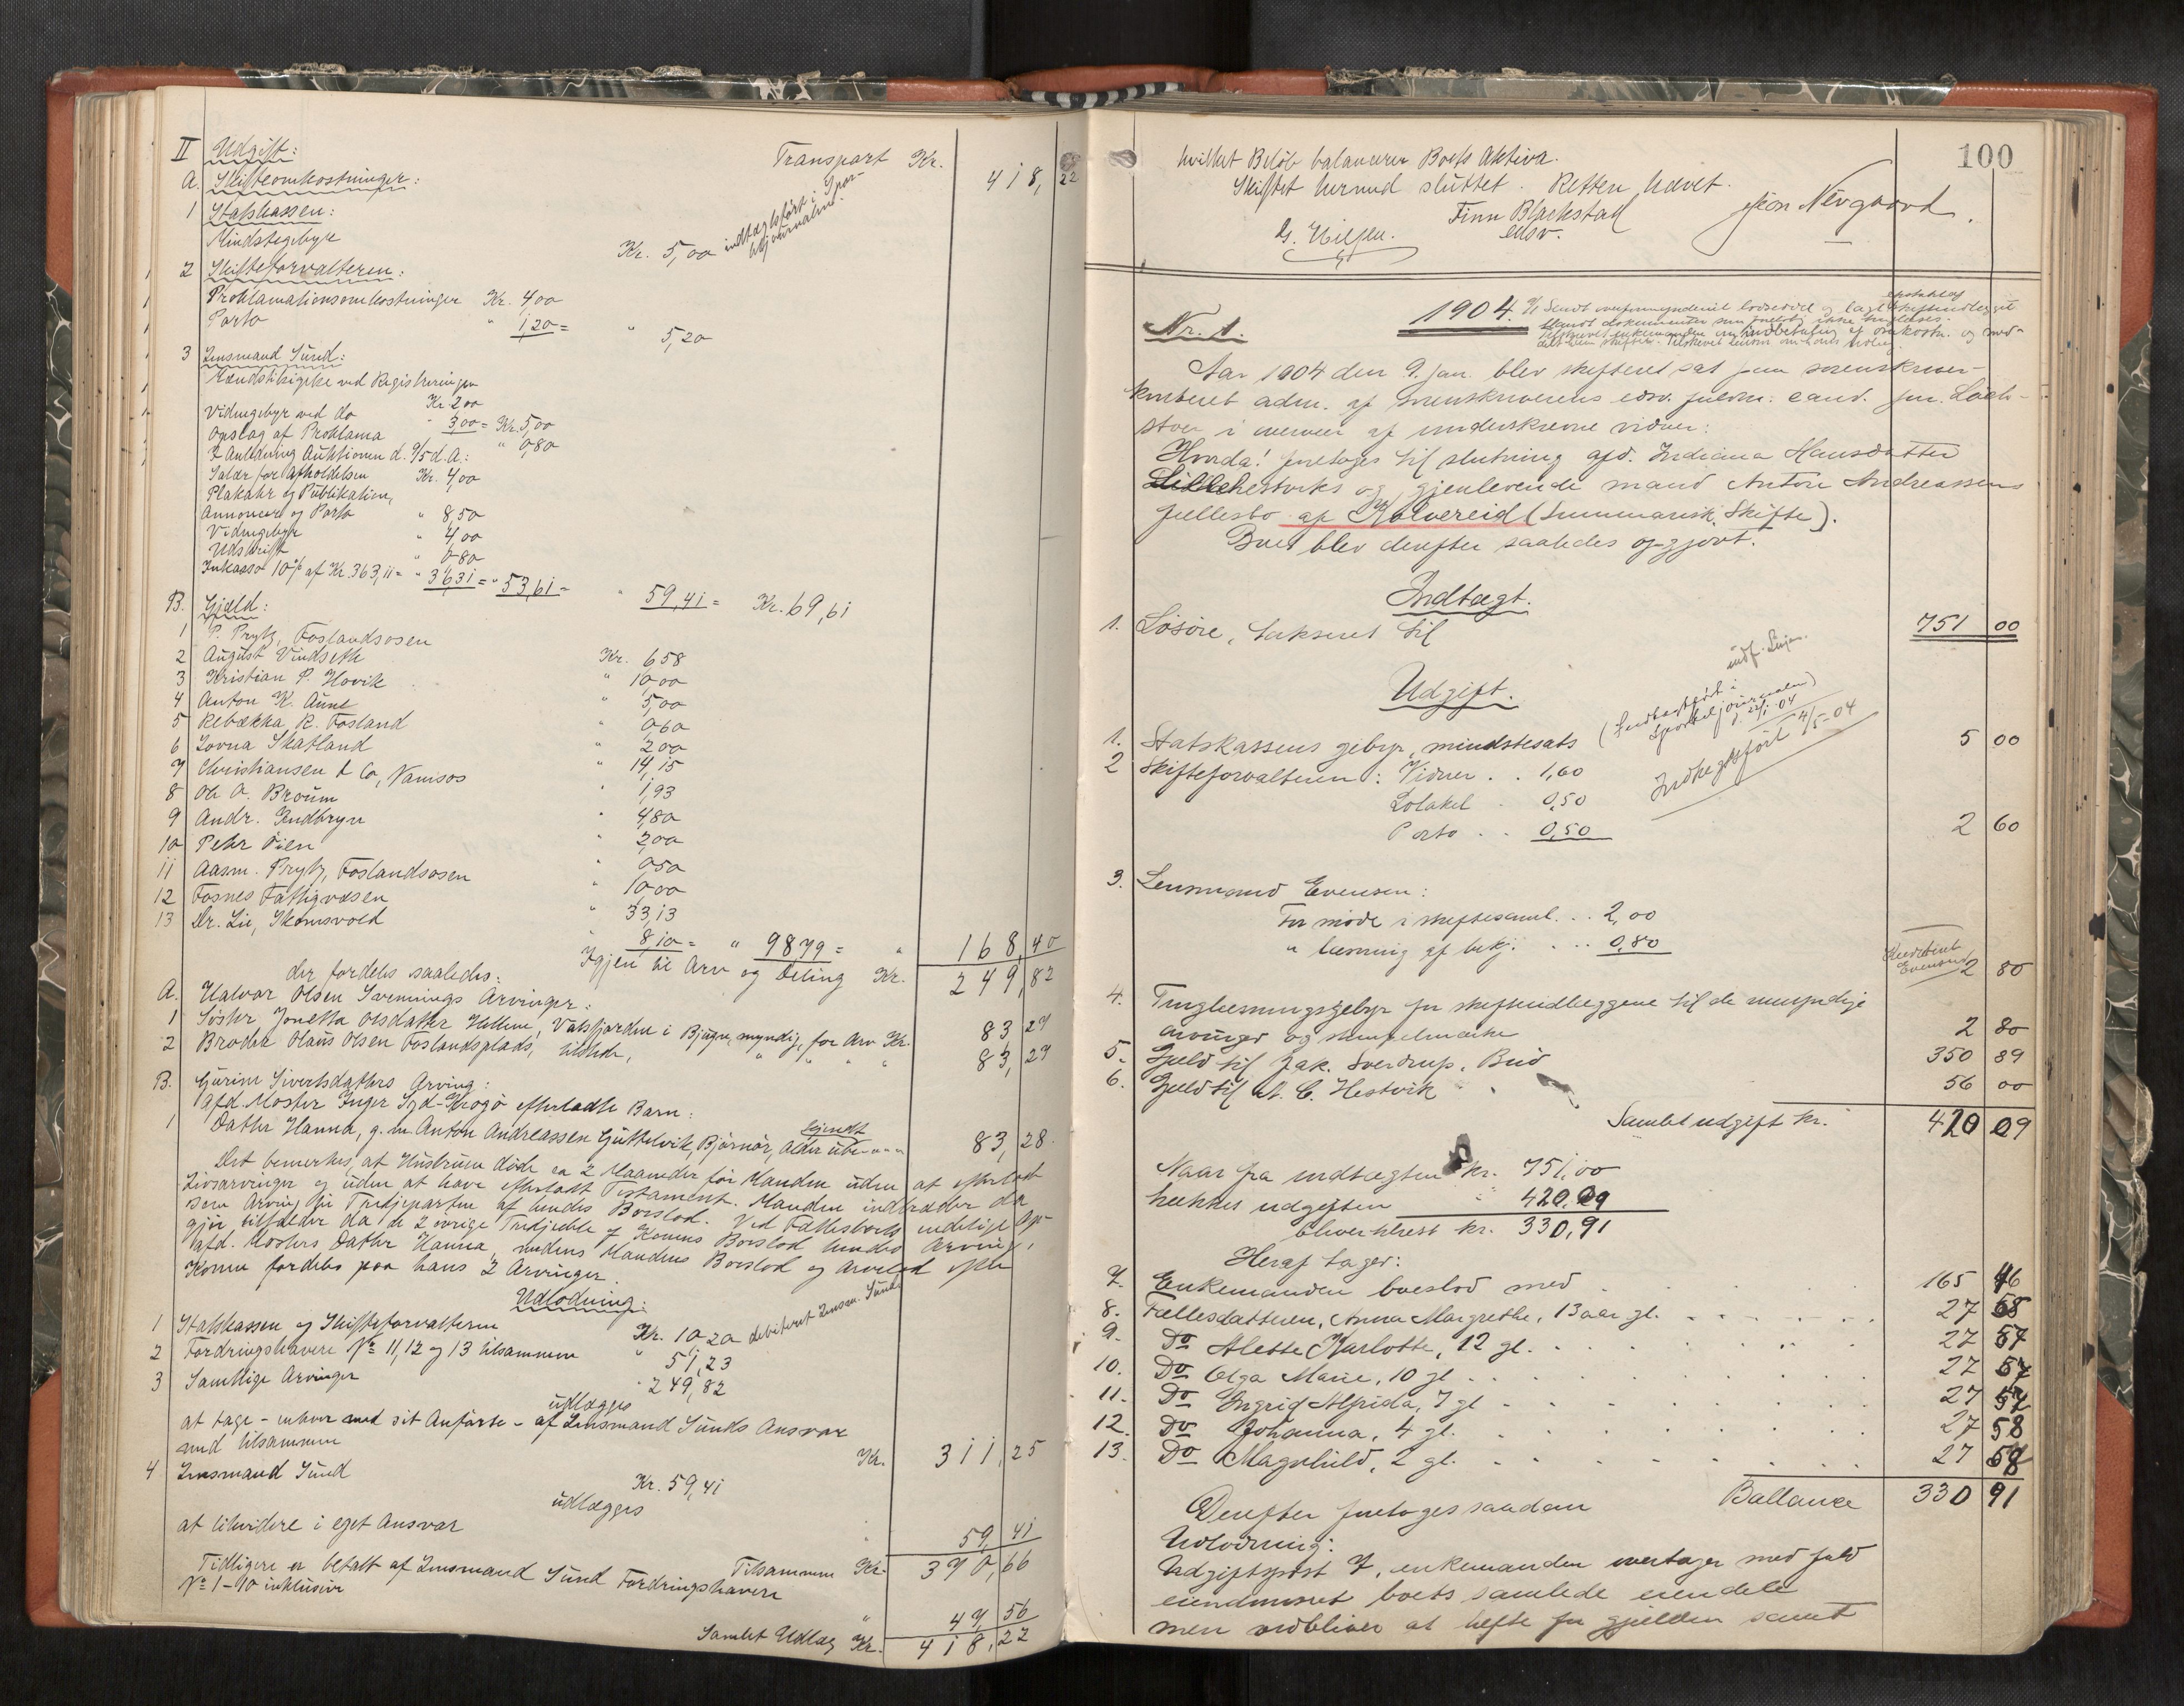 II Udgift:
Transport Kr. 418,22
A. Skifteomkostninger:
1 Statskassen:
Mindstegebyr Kr. 5,00 indtægtsført i Spor-
teljournalen.
2 Skifteforvalteren:
Proklamationsomkostninger Kr. 4,00
Porto " 1,20 = " 5,20
3 Lensmand Sund:
ved Registreringen
Kr. 2,00
Vidnegebyr ved do " 3,00 = Kr. 5,00
Opslag af Proklama " 0,80
I Anledning Auktionen d. 9/5 d. A.:
Salær for Afholdelsen Kr. 4,00
Plakater og Publikation,
Annoncer og Porto " 8,50
Vidnegebyr " 4,00
Udskrift " 0,80
Inkasso 10% af Kr. 363,11 = " 36,31 = " 53,61 = " 59,41 = Kr. 69,61
B. Gjæld:
1 P. Prytz, Foslandsosen Kr. 6,58
2 August Vindseth " 10,00
3 Kristian P. Hovik " 5,00
4 Anton K. Aune " 0,60
5 Rebekka R. Fosland " 2,00
6 Lovna Skatland " 14,15
7 Christiansen & Co, Namsos " 1,93
8 Ole A. Broum " 4,80
9 Andr. Indbryn " 2,00
10 Peter Øien " 0,50
11 Aasm. Prytz, Foslandsosen " 10,00
12 Fosnes Fattigvæsen " 33,13
13 Dr. Lie, Skomsvold " 8,10 = " 98,79 = " 168,40
Igjen til Arv og Deling Kr. 249,82
der fordeles saaledes:
A. Halvor Olsen Svennings Arvinger:
1 Søster Jonetta Olsdatter Hellem, Valsfjorden i Bjugn, myndig, for Arv Kr. 83,27
2 Broder Olaus Olsen Foslandsplads, tilstede, " " " 83,27
B. Gurine Sivertsdatters Arving:
afd. Moster Inger Syd-Krogø efterladte Barn:
1 Datter Hanna, g. m. Anton Andreassen Guttelvik, Bjørnør, Alder ubekjendt " " " 83,28
Det bemerkes, at Hustruen døde ca 2 Maaneder før Manden uden at efterlade
Livsarvinger og uden at have efterladt Testament. Manden indtræder da
som Arving for Tredjeparten af hendes Boeslod. Ved Fællesboets endelige Op-
gjør tilfalder da de 2 øvrige Tredjedele af Konens Boeslod hendes Arving,
afd. Mosters Datter Hanna, medens Mandens Boeslod og Arvelod efter
Konen fordeles paa hans 2 Arvinger.
Udlodning:
1 Statskassen og Skifteforvalteren Kr. 10,20 debiteret Lensm. Sund
2 Fordringshavere No 11, 12 og 13 tilsammen " 51,23
3 Samtlige Arvinger " 249,82
udlægges
at tage - enhver med sit Anførte - af Lensmand Sunds Ansvar
med tilsammen Kr. 311,25
4 Lensmand Sund Kr. 59,41
udlægges
at likvidere i eget Ansvar " 59,41
Tilsammen Kr. 370,66
Tidligere er betalt af Lensmand Sund Fordringshavere
No 1-10 inklusive " 47,56
Samlet Udlæg Kr. 418,22
100
hvilket Beløb balancerer Boets Aktiva.
Skiftet hermed sluttet. Retten hævet.
Finn Blackstad
edsv.
Jon Nergaard.
G. Nilsen.
1904.
Nr. 1.
Aar 1904 den 9. Jan. blev skifteret sat paa sorenskriver-
kontoret adm. af sorenskriverens edsv. fuldm: cand. jur. Loch-
stoer i overvær af underskrevne vidner:
Hvorda! foretoges til slutning afd. Indiana Hansdatter
Lillehestviks og gjenlevende mand Anton Andreassens
fællesbo af Kolvereid (Summarisk Skifte).
Boet blev derefter saaledes opgjort.
Indtægt.
1. Løsøre, takseret til 751 00
Udgift.
1. Statskassens gebyr, mindstesats (Indtægtsført i
Sportuljournalen) 5 00
Indtægtsført 4/5-04
2 Skifteforvalteren: Vidner . . 1,60
Lolakel . 0,50
Porto . . 0,50 2 60
3. Lensmand Evensen:
For møde i skiftesaml. . . 2,00
" læsning af bekj. . . . 0,80 2 80
4. Tinglæsningsgebyr for skifteudlæggene til de umyndige
arvinger og stempelmærke 2 80
5. Gjeld til Jak. Sverdrup, Bud 350 89
6. Gjeld til A. C. Hestvik 56 00
Samlet udgift kr. 420 09
Naar fra indtægten kr. 751,00
trækkes udgiften " 420,09
bliver tilrest kr. 330,91
Heraf tager:
7. Enkemanden boeslod med . . . 165 46
8. Fællesdatteren, Anna Margrethe, 13 aar gl. . . . 27 58
9. Do Alette Karlotte, 12 gl. . . . 27 57
10. Do Olga Marie, 10 gl . . . 27 57
11. Do Ingrid Alfrida, 7 gl . . . 27 57
12. Do Johanna, 4 gl. . . . 27 58
13. Do Magnhild, 2 gl. . . . 27 58
Ballance 330 91
Derefter foretoges saadan
Udlodning:
Udgiftspost 7, enkemanden overtager med fuld
eiendomsret boets samlede eiendele
men vedbliver at hefte for gjelden samt